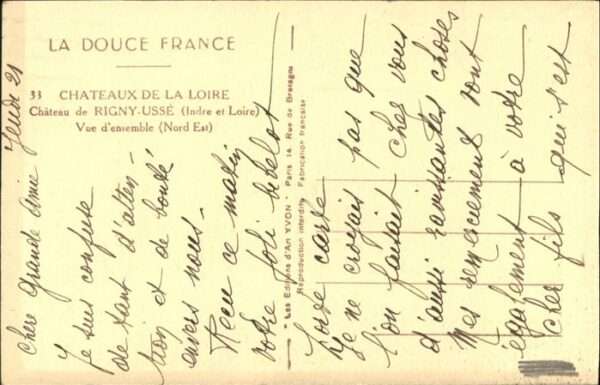 LA DOUCE FRANCE
33 CHATEAUX DE LA LOIRE
Château de RIGNY-USSÉ (Indre et Loire)
Vue d'ensemble (Nord Est)
"Les Editions d'Art YVON" Paris 14 Rue de Bretagne
Reproduction interdite Fabrication française
Jeudi 21
Chère Grande Amie
Je suis confuse
de tant d'atten-
tion et de bonté
envers nous -
Reçu ce matin
votre joli bibelot
carte
Je ne croyais pas que
l'on faisait chez vous
d'aussi ravissantes choses
Mes remerciements vont
également à votre
cher fils qui s'est